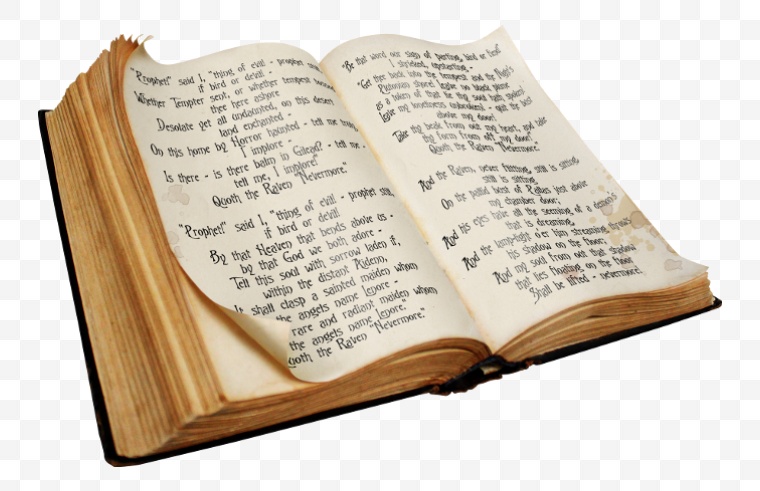 "Prophet!" said I, "thing of evil! - prophet still,
if bird or devil! -
Whether Tempter sent, or whether tempest tossed
thee here ashore
Desolate yet all undaunted, on this desert
land enchanted -
On this home by Horror haunted - tell me truly,
I implore -
Is there - is there balm in Gilead? - tell me -
tell me, I implore!"
Quoth the Raven "Nevermore."
"Prophet!" said I, "thing of evil! - prophet still,
if bird or devil!
By that Heaven that bends above us -
by that God we both adore -
Tell this soul with sorrow laden if,
within the distant Aidenn,
It shall clasp a sainted maiden whom
the angels name Lenore -
rare and radiant maiden whom
the angels name Lenore."
Quoth the Raven "Nevermore."
"Be that word our sign of parting, bird or fiend!"
I shrieked, upstarting -
"Get thee back into the tempest and the Night's
Plutonian shore! Leave no black plume
as a token of that lie thy soul hath spoken!
Leave my loneliness unbroken! - quit the bust
above my door!
Take thy beak from out my heart, and take
thy form from off my door!"
Quoth the Raven "Nevermore."
And the Raven, never flitting, still is sitting,
still is sitting
On the pallid bust of Pallas just above
my chamber door;
And his eyes have all the seeming of a demon's
that is dreaming,
And the lamp-light o'er him streaming throws
his shadow on the floor;
And my soul from out that shadow
that lies floating on the floor
Shall be lifted - nevermore!